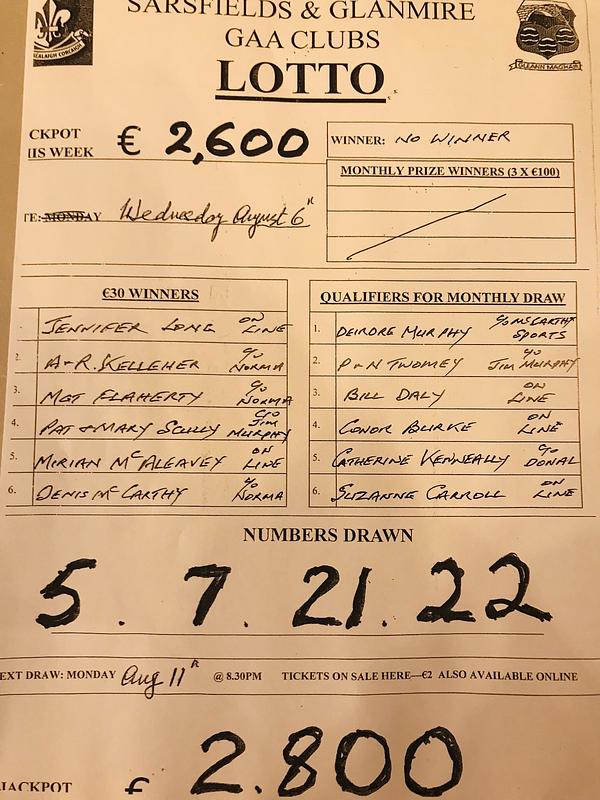 SARSFIELDS & GLANMIRE
GAA CLUBS
LOTTO
CEALAIGH CORCAIGH
GLEANN MAGHAIR
CKPOT
IIS WEEK
€ 2,600
WINNER: NO WINNER
MONTHLY PRIZE WINNERS (3 X €100)
TE: MONDAY Wednesday August 6th
€30 WINNERS
1. JENNIFER LONG ON LINE
2. A+R. KELLEHER c/o NORMA
3. MGT FLAHERTY c/o NORMA
4. PAT + MARY SCULLY c/o JIM MURPHY
5. MIRIAN McALEAVEY ON LINE
6. DENIS McCARTHY c/o NORMA
QUALIFIERS FOR MONTHLY DRAW
1. DEIRDRE MURPHY c/o McCARTHY SPORTS
2. P+N TWOMEY c/o JIM MURPHY
3. BILL DALY ON LINE
4. CONOR BURKE ON LINE
5. CATHERINE KENNEALLY c/o DONAL
6. SUZANNE CARROLL ON LINE
NUMBERS DRAWN
5 . 7 . 21 . 22
EXT DRAW: MONDAY Aug 11th @ 8.30PM TICKETS ON SALE HERE—€2 ALSO AVAILABLE ONLINE
JACKPOT € 2.800